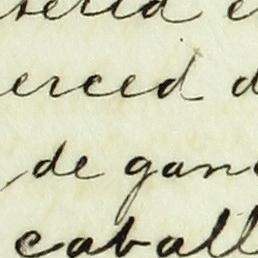 erced d
de gana
caball